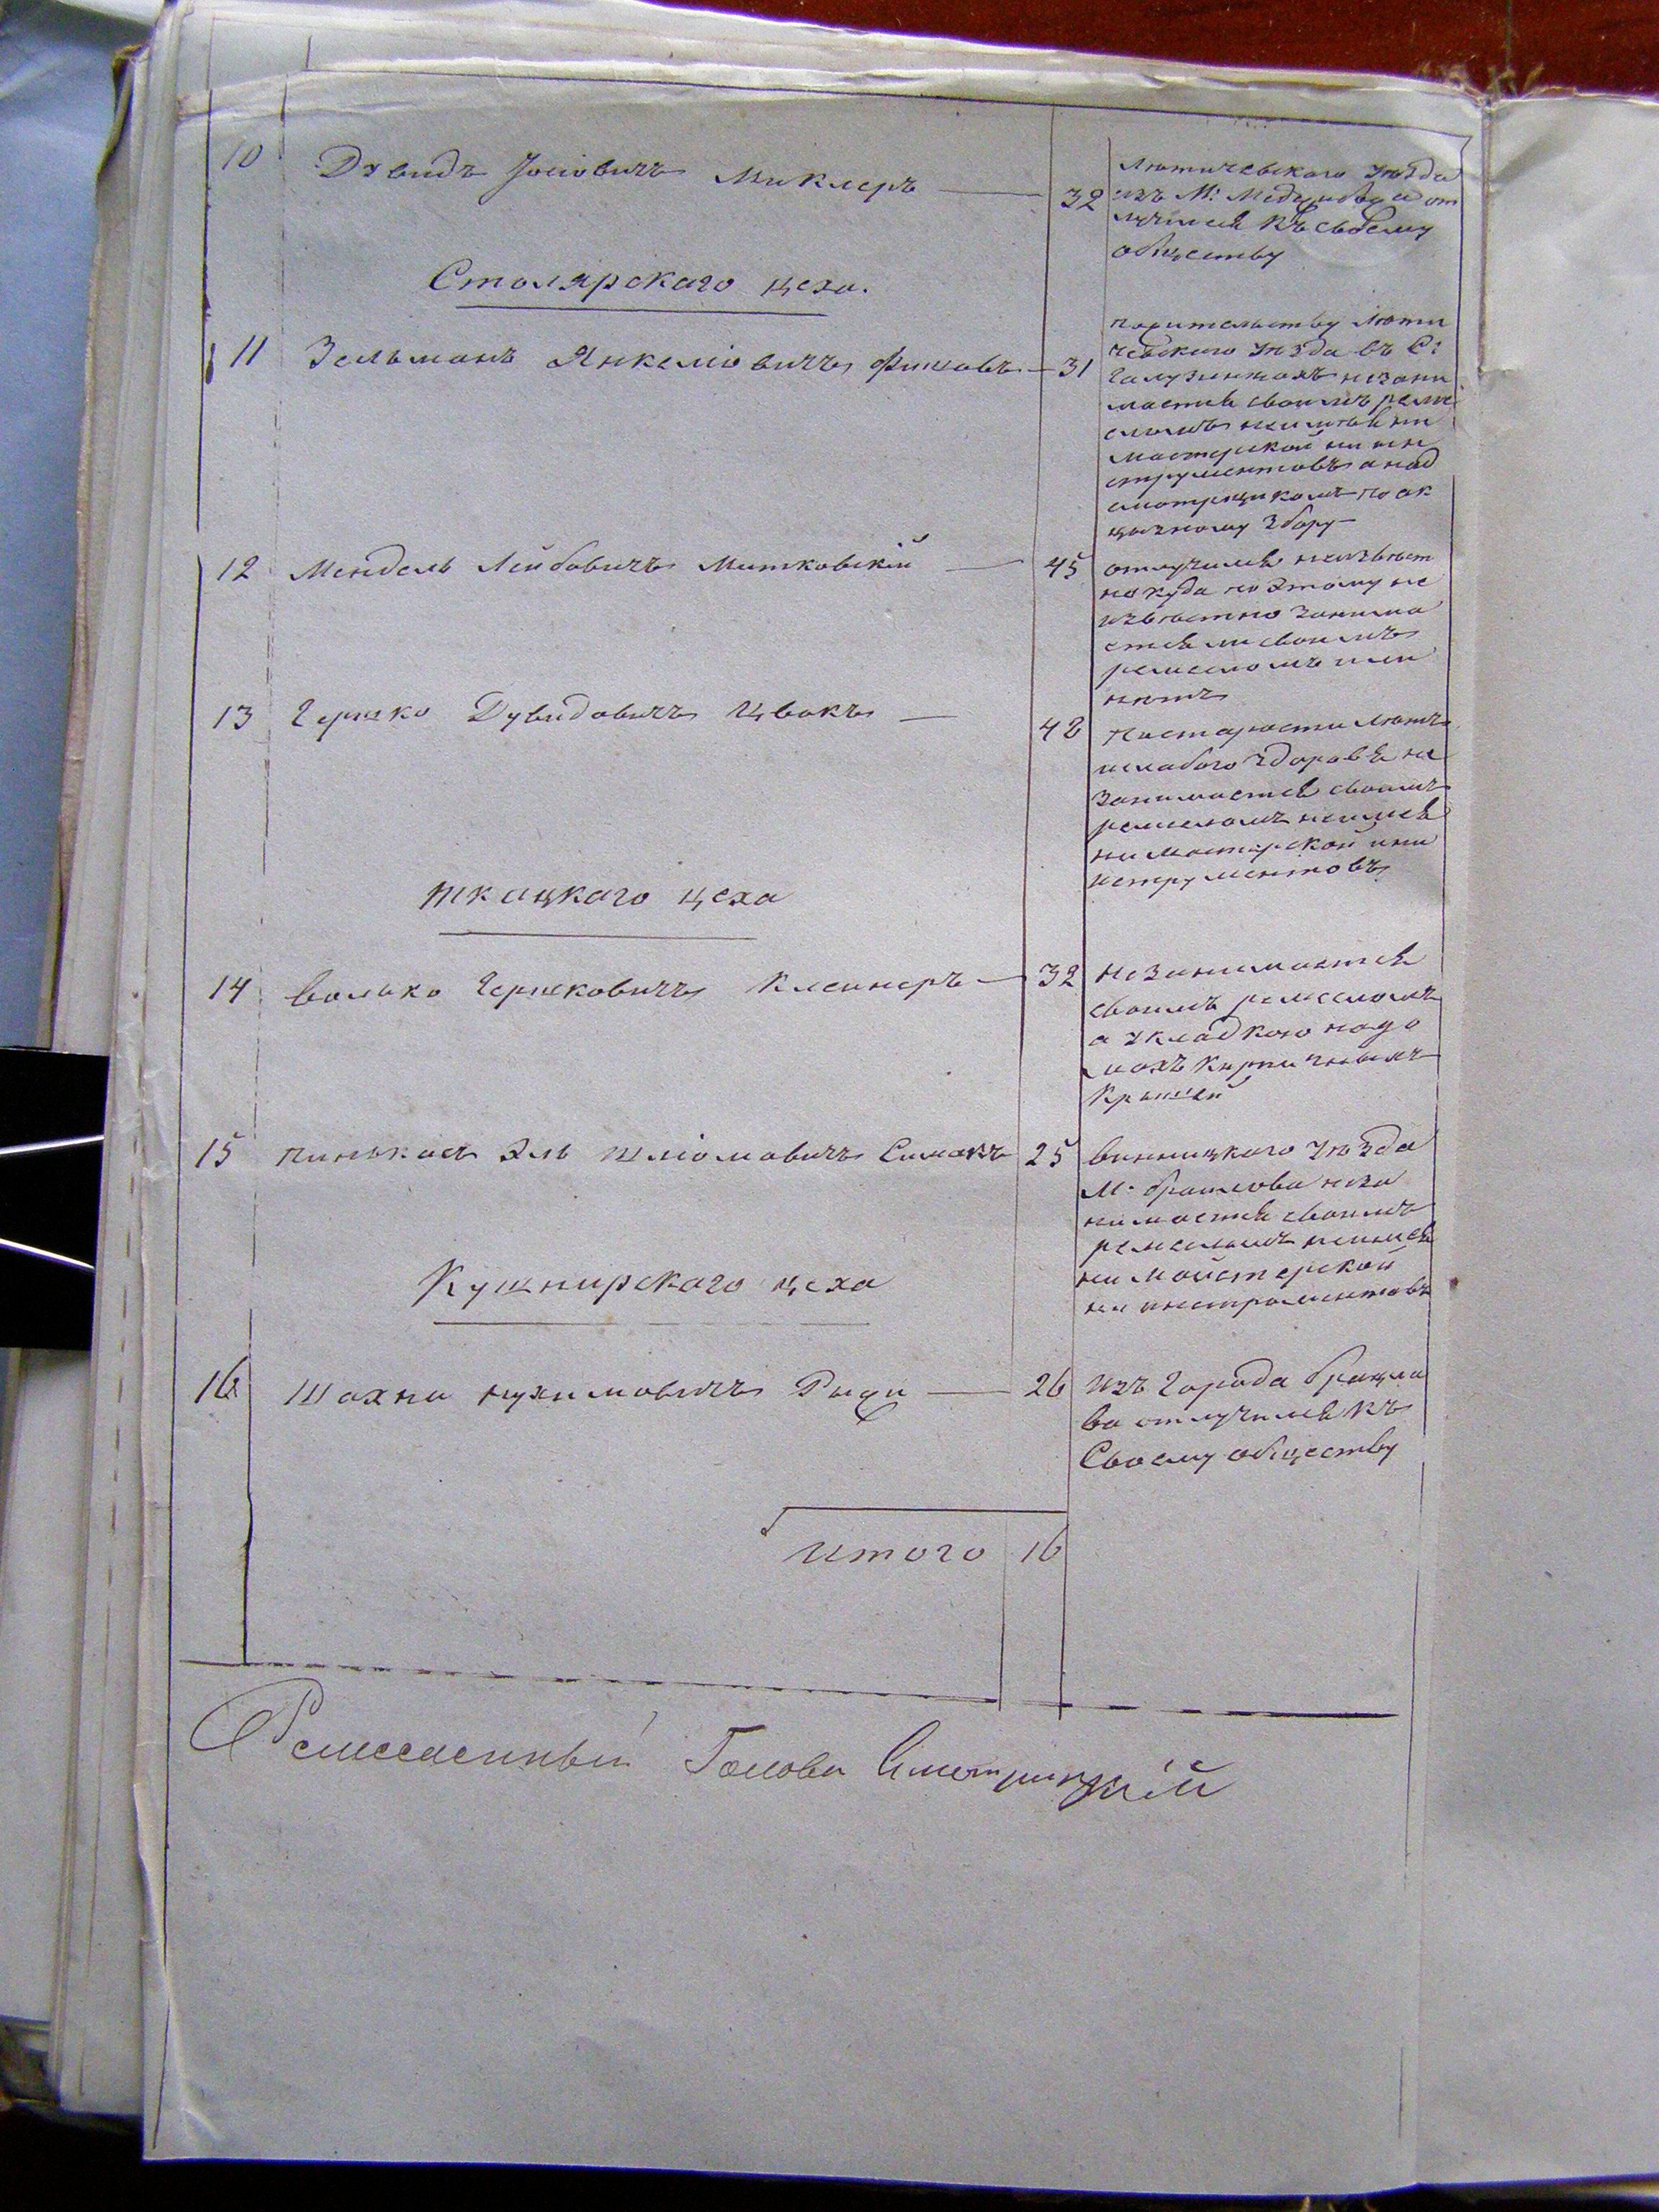 10 Дувидъ Іосіовичъ Миклеръ — 32
Лютичевскаго уѣзда
изъ М: Меджибожа от
лучился къ своему
обществу
Столярскаго цеха.
11 Зельманъ Янкеліовичъ Фишовъ — 31
жительству Лети
чевского уѣзда въ С:
Галузинкахъ незани
мается своимъ реме
сломъ неимѣя ни
мастерской ни ин
струментовъ а над
смотрщикомъ по ак
цызному збору —
12 Мендель Лейбовичъ Митковскій — 45
отлучился неизвѣст
но куда по этому не
извѣстно занима
ется ли своимъ
ремесломъ или
нѣтъ
13 Гершко Дувидовичъ Цвокъ — 42
По старости лѣтъ
и слабого здоровя не
занимается своимъ
ремесломъ неимѣя
ни мастерской ни и
нструментовъ
ткацкаго цеха
14 Волько Гершковичъ Клейнеръ — 32
Незанимается
своимъ ремесломъ
а укладкою на до
махъ кирпичнымъ
крышей
15 Пинькасъ Эль Шліомовичъ Симакъ 25
Винницкаго уѣзда
М. браилова неза
нимается своимъ
ремесломъ неимѣя
ни майстерской
ни инструментовъ
Кушнирскаго цеха
16 Шахна Нухимовичъ — 26
изъ Города брацла
ва отлучился къ
Своему обществу
итого 16
Ремесленный Голова